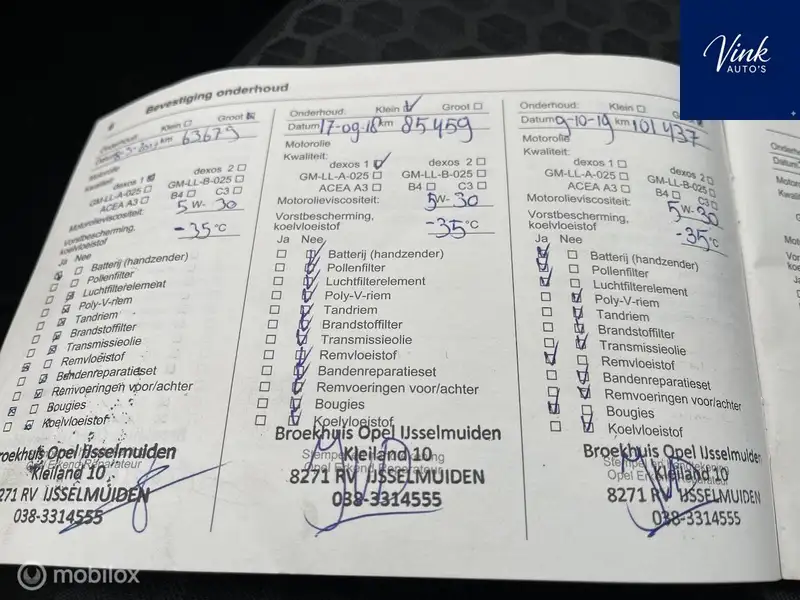 Vink
AUTO'S
6 Bevestiging onderhoud
Onderhoud: Klein Groot
Datum km 63679
Motorolie
Kwaliteit:
dexos 1 dexos 2
GM-LL-A-025 GM-LL-B-025
ACEA A3 B4 C3
Motorolieviscositeit:
5W-30
Vorstbescherming,
koelvloeistof -35°C
Ja Nee
Batterij (handzender)
Pollenfilter
Luchtfilterelement
Poly-V-riem
Tandriem
Brandstoffilter
Transmissieolie
Remvloeistof
Bandenreparatieset
Remvoeringen voor/achter
Bougies
Koelvloeistof
Broekhuis Opel IJsselmuiden
Kleiland 10
Opel Erkend Reparateur
8271 RV IJSSELMUIDEN
038-3314555
Onderhoud: Klein Groot
Datum 17-09-18 km 85459
Motorolie
Kwaliteit:
dexos 1 dexos 2
GM-LL-A-025 GM-LL-B-025
ACEA A3 B4 C3
Motorolieviscositeit: 5W-30
Vorstbescherming,
koelvloeistof -35°C
Ja Nee
Batterij (handzender)
Pollenfilter
Luchtfilterelement
Poly-V-riem
Tandriem
Brandstoffilter
Transmissieolie
Remvloeistof
Bandenreparatieset
Remvoeringen voor/achter
Bougies
Koelvloeistof
Broekhuis Opel IJsselmuiden
Kleiland 10
Opel Erkend Reparateur
8271 RV IJSSELMUIDEN
038-3314555
Onderhoud: Klein Groot
Datum 9-10-19 km 101437
Motorolie
Kwaliteit:
dexos 1 dexos 2
GM-LL-A-025 GM-LL-B-025
ACEA A3 B4 C3
Motorolieviscositeit: 5W-30
Vorstbescherming,
koelvloeistof -35°C
Ja Nee
Batterij (handzender)
Pollenfilter
Luchtfilterelement
Poly-V-riem
Tandriem
Brandstoffilter
Transmissieolie
Remvloeistof
Bandenreparatieset
Remvoeringen voor/achter
Bougies
Koelvloeistof
Broekhuis Opel IJsselmuiden
Stempel en handtekening
Kleiland 10
8271 RV IJSSELMUIDEN
038-3314555
mobilox